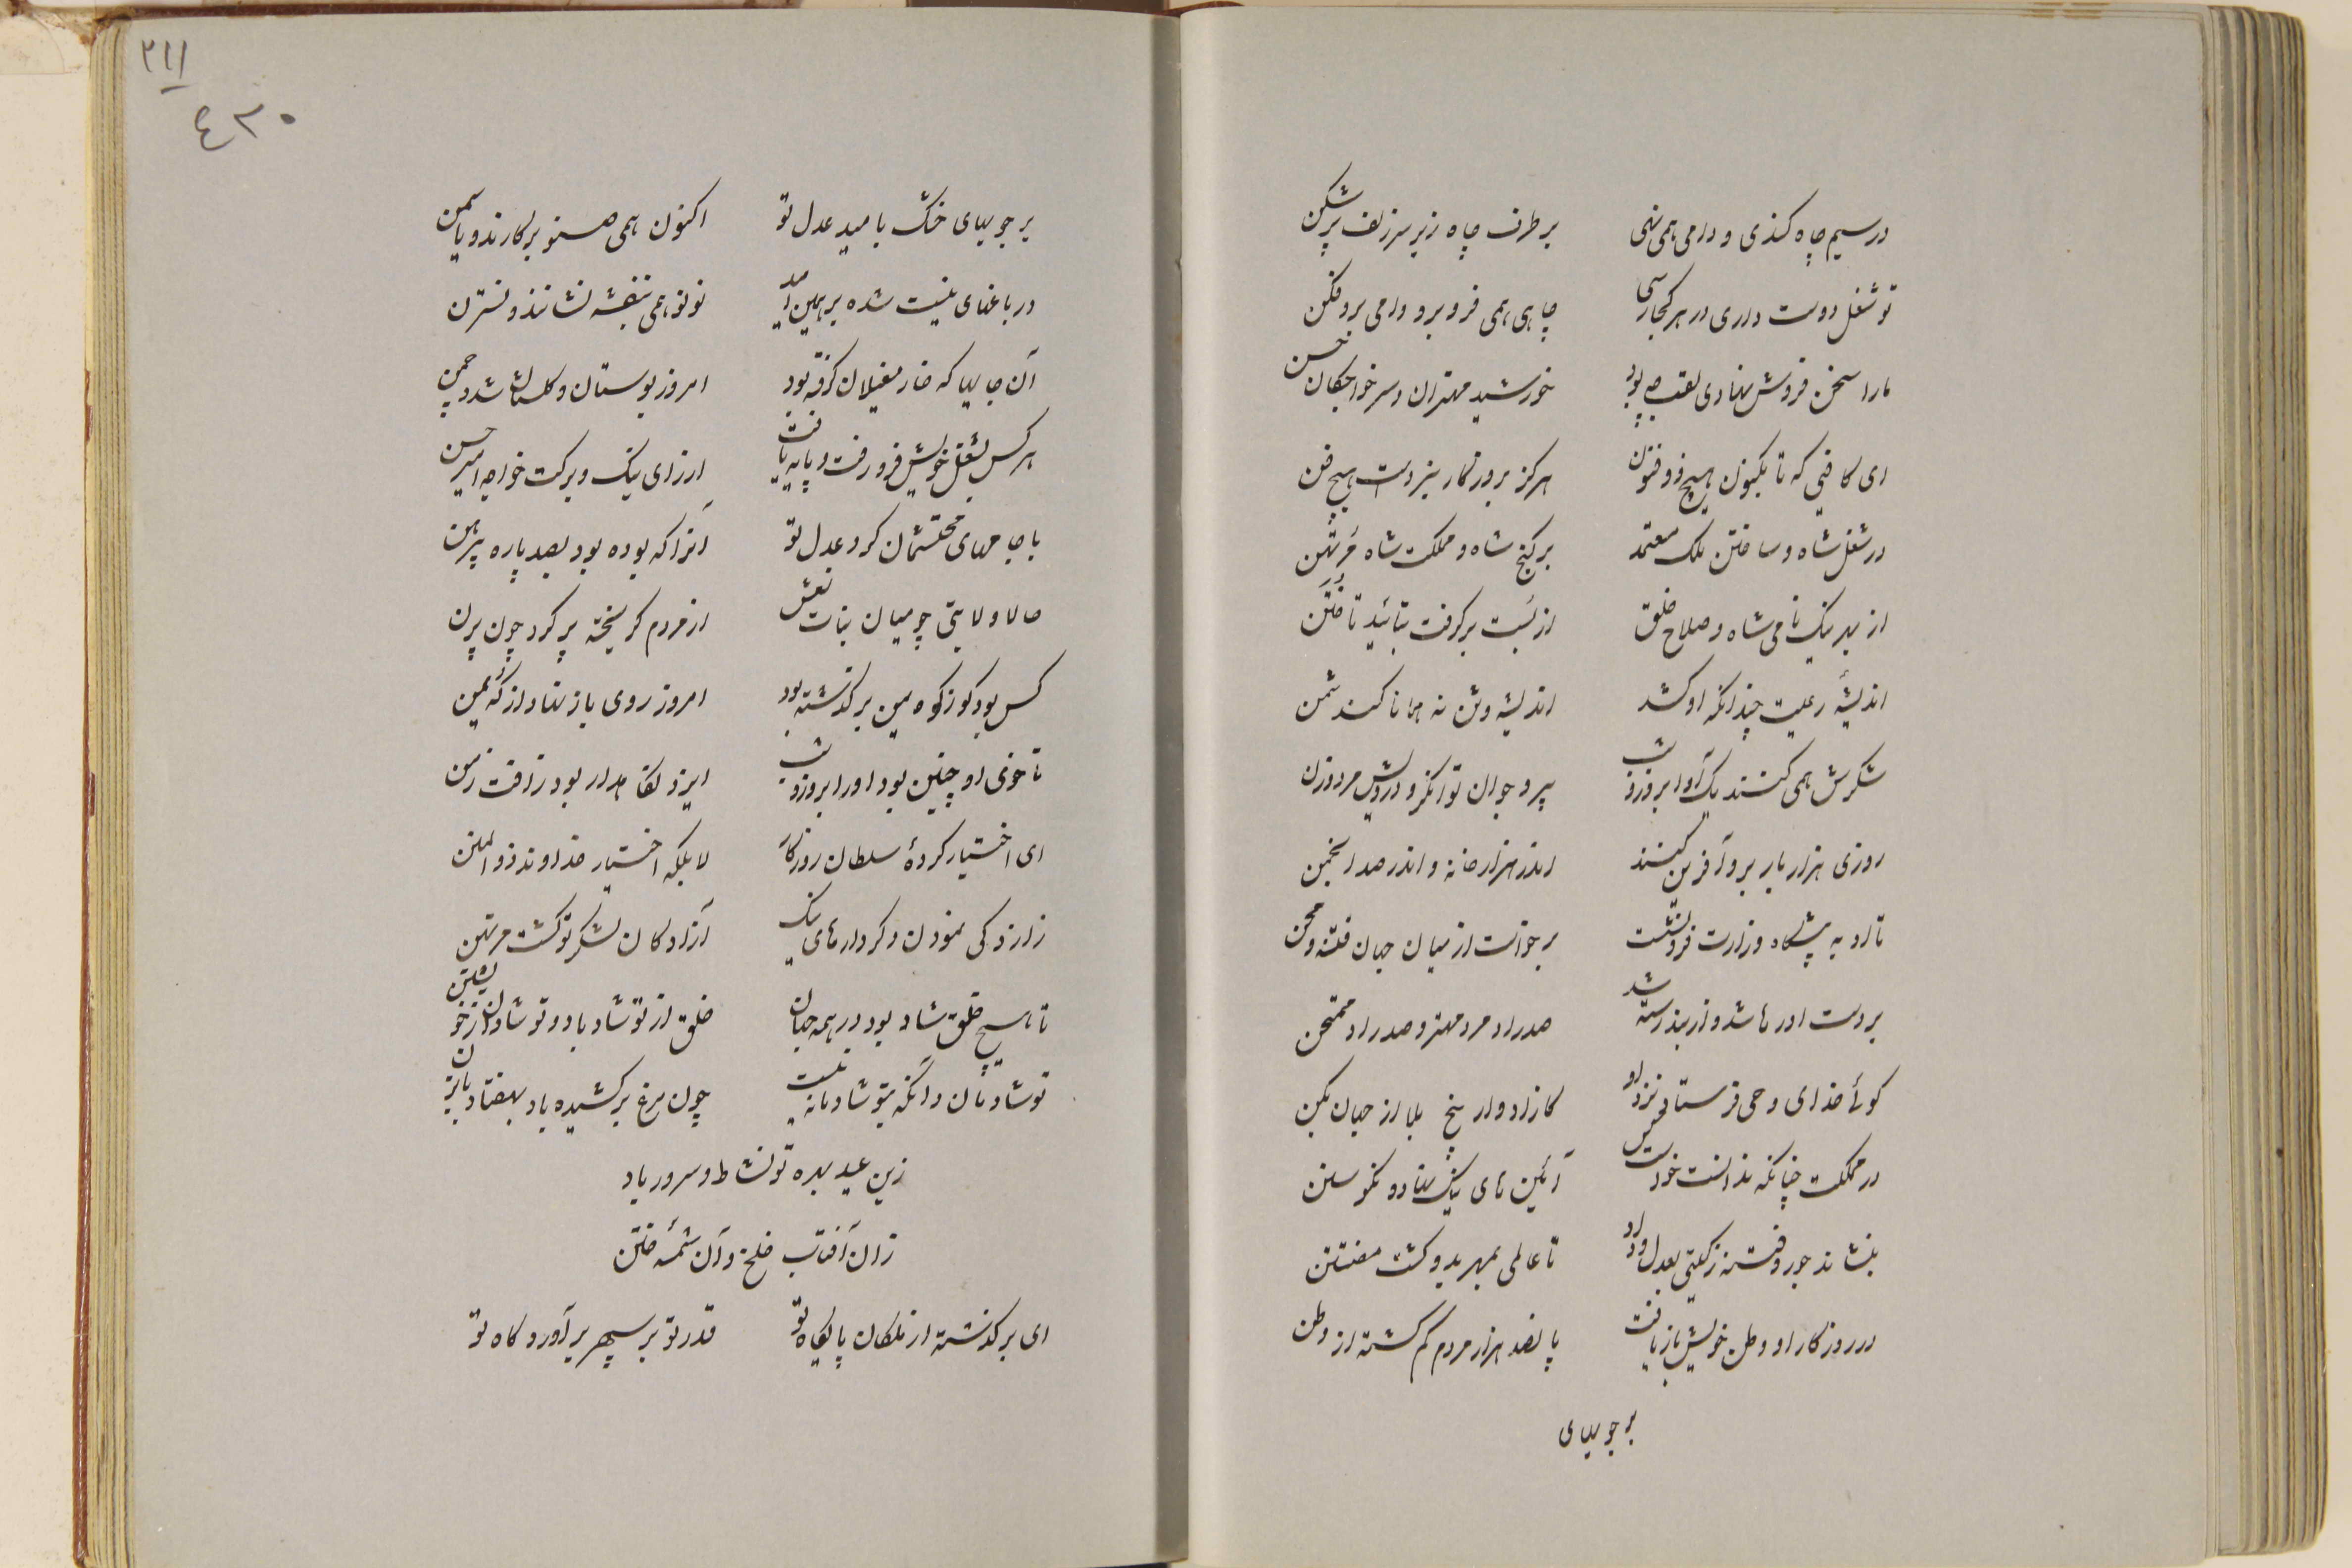 در سیم چاه کندی و دامی همی نهی بر طرف چاه زیر سر زلف پر شکن
تو شغل دوست داری در هر کجا رسی چاهی همی فرو بر و دامی برو فکن
ما را سخن فروش نهادی لقب چه بود خورشید مهتران و سر خواجگان حسن
ای کافئی که تا بکنون هیچ ذوفنون هرگز بروزگار نبرد است هیچ فن
در شغل شاه و ساختن ملک معتمد بر گنج شاه و مملکت شاه مؤتمن
از بهر نیک نامی شاه و صلاح خلق از بُست برگرفت بتائید تا خُتَن
اندیشهٔ رعیت چندانکه او کشد اندیشه وثن نه همانا کند شمن
شکرش همی کنند یک آوا بروز و شب پیر و جوان توانگر و درویش مرد و زن
روزی هزار بار برو آفرین کنند اندر هزار خانه و اندر صد انجمن
تا او به پیشگاه وزارت فرو نشست برخواست از میان جهان فتنه و محن
بر دست او رها شد و از بند رسته شد صد راد مرد مهتر و صد راد ممتحن
گوئی خدای وحی فرستاد نزد او کازاد وار بیخ بلا از جهان بکن
در مملکت چنانکه بدانست خود بس آئین های نیک نهاد و نکو سنن
بنشاند جور و فتنه ز گیتی بعدل و داد تا عالمی بمهر بدو گشت مفتتن
در روزگار او وطن خویش باز یافت پانصد هزار مردم گم گشته از وطن
بر جویهای
۲۱۱
٤٣٠
بر جویهای خشک بامید عدل تو اکنون همی صنوبر کارند و یاسمن
در باغهای نیست شده بر همین امید نو نو همی بنفشه نشانند و نسترن
آن جایها که خار مغیلان گرفته بود امروز بوستان و گلستان شد و چمن
هر کس بشغل خویش فرو رفت و پایه یافت از رای نیک و برکت خواجه امیر حسن
با جامهای محتشمان کرد عدل تو آنرا که بوده بود بصد پاره پیرهن
حالا ولایتی چو میان بنات نعش از مردم گریخته پر کرد چون پرن
کس بود کو ز کوه مین برگذشته بود امروز روی باز نهاد از کُه یمن
تا خوی او چنین بود او را بروز و شب ایزد نگاهدار بود ز آفت زمن
ای اختیار کردهٔ سلطان روزگار لا بلکه اختیار خداوند ذوالمنن
ز آزادگی نمودن و کردارهای نیک آزادگان لشکر تو گشت مرتهن
تا هیچ خلق شاد بود در همه جهان خلق از تو شاد باد و تو شادان ز خویشتن
تو شادمان و آنکه بتو شادمانه نیست چون مرغ بر کشیده بهفتاد بابزن
زین عید بهره تو نشاط و سرور باد
زان آفتاب خلخ و آن شمسهٔ ختن
ای برگذشته از ملکان پایگاه تو قدر تو بر سپهر بر آورد گاه تو